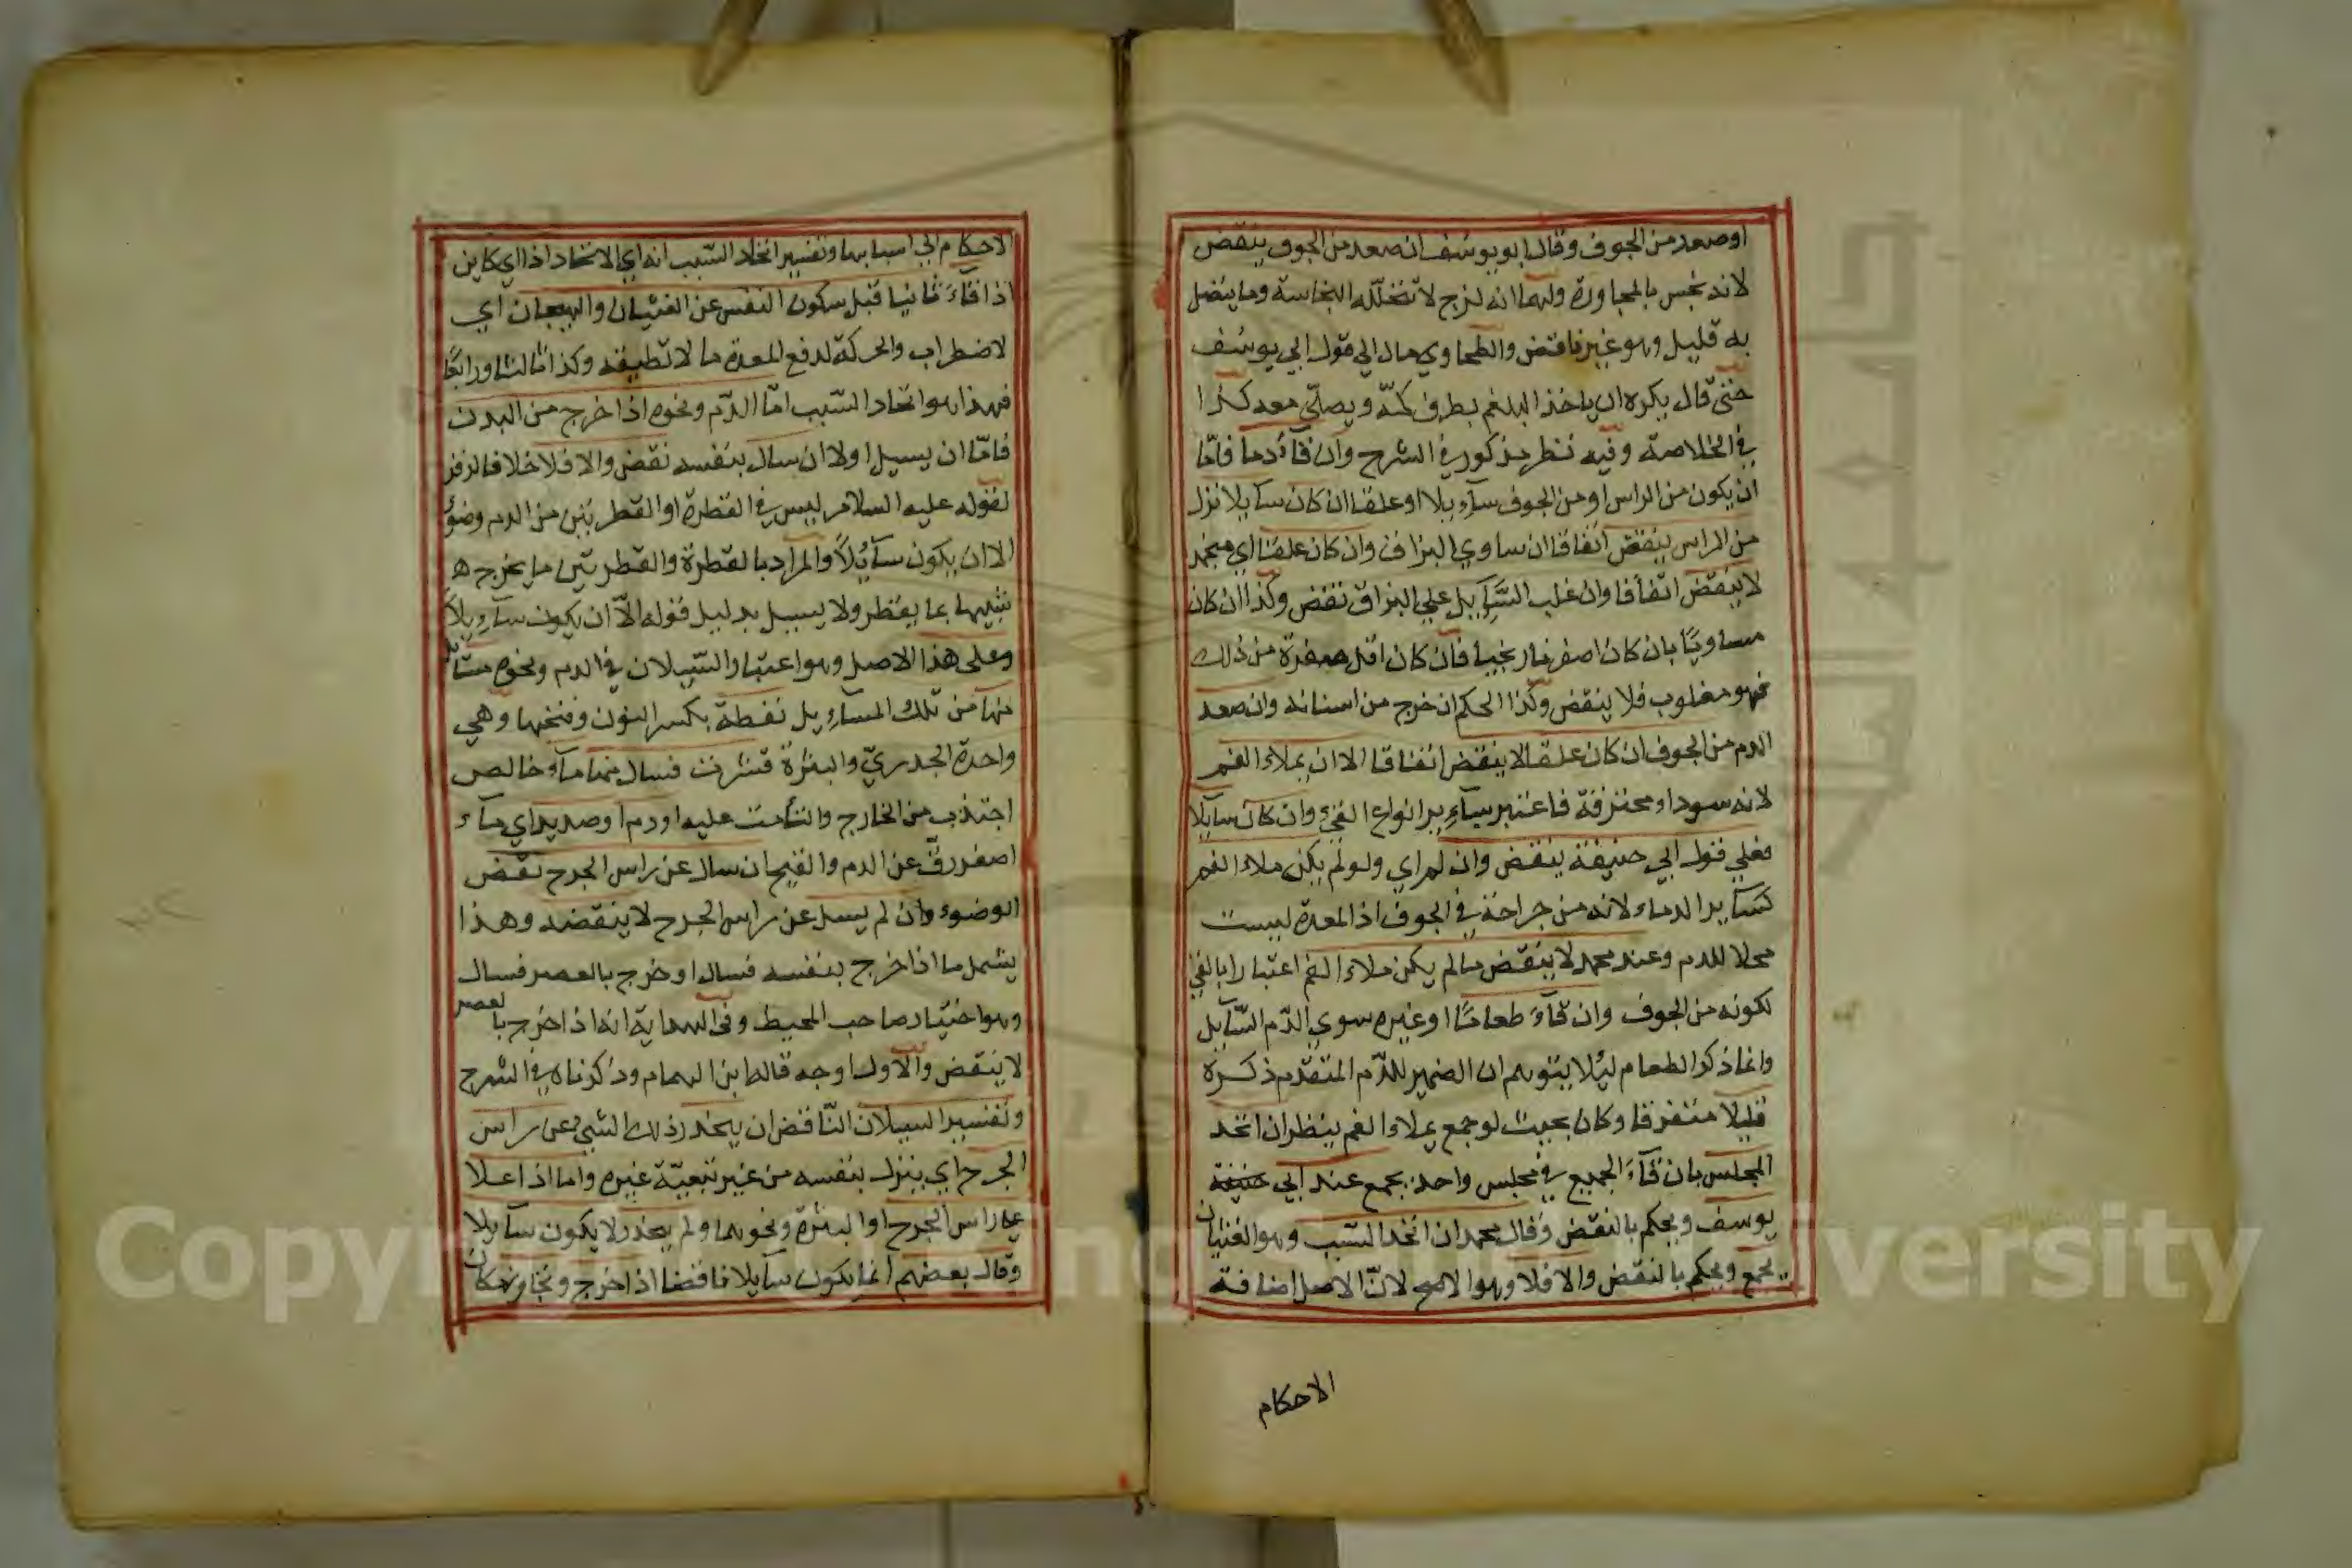 اوصعد من الجوف وقال ابو يوسف ان صعد من الجوف ينقض
لانه نجس بالمجاورة ولهما انه لزج لا تتخلله النجاسة وما يتصل
به قليل وهو غير ناقض والطحاوي مال الي قول ابي يوسف
حتي قال يكره ان ياخذ البلغم بطرف كمّه ويصلّي معه كذا
في الخلاصة وفيه نظر مذكور في الشرح وان قآء دما فامّا
ان يكون من الراس او من الجوف سآيلا او علقا ان كان سآيلا نزل
من الراس ينقض اتفاقا ان ساوي البزاق وان كان علقا اي منجمد
لا ينقض اتفاقا وان غلب السّآيل علي البزاق نقض وكذا ان كان
مساويًا بان كان اصفر نارنجيا فان كان اقل صفرة من ذلك
فهو مغلوب فلا ينقض وكذا الحكم ان خرج من اسنانه وان صعد
الدم من الجوف ان كان علقا لا ينقض اتفاقا الا ان يملاء الفم
لانه سوداء محترقة فاعتبر بسآير انواع القيء وان كان سآيلا
فعلي قول ابي حنيفة ينقض وان لم اي ولو لم يكن ملاء الفم
كسآير الدماء لانه من جراحة في الجوف اذ المعدة ليست
محلا للدم وعند محمد لا ينقض ما لم يكن ملاء الفم اعتبارا بالقيء
لكونه من الجوف وان قآء طعامًا او غيره سوي الدّم السّآيل
وانما ذكر الطعام ليلا يتوهم ان الضمير للدّم المتقدم ذكره
قليلا متفرقا وكان بحيث لو جمع يملاء الفم ينظر ان اتحد
المجلس بان قآء الجميع في مجلس واحد يجمع عند ابي حنيفة
يوسف ويحكم بالنقض وقال محمد ان اتحد السّبب وهو الغثيان
يجمع ويحكم بالنقض والا فلا وهو الاصح لانّ الاصل اضافة
الاحكام
الاحكام الي اسبابها وتفسير اتحاد السّبب انه اي الاتحاد اذا اي كاين
اذا قآء ثانيا قبل سكون النفس عن الغثيان والهيجان اي
لاضطراب والحركة لدفع المعدة ما لا تطيقه وكذا ثالثا ورابعًا
فهذا هو اتحاد السّبب امّا الدّم ونحوه اذا خرج من البدن
فامّا ان يسيل او لا ان سال بنفسه نقض والا فلا خلافا لزفر
لقوله عليه السلام ليس في القطرة او القطرتين من الدم وضوء
الا ان يكون سآيلًا والمراد بالقطرة والقطرتين ما يخرج ه
شبيها بما يقطر ولا يسيل بدليل قوله الّا ان يكون سآيلًا
وعلى هذا الاصل وهو اعتبار السّيلان في الدم ونحوه مسآيل
منها من تلك المسآيل نفطة بكسر النون وفتحها وهي
واحدة الجدريّ والبثرة قشرت فسال منها مآء خالص
اجتذب من الخارج والتأمت عليه او دم او صديد اي مآء
اصفر رقّ عن الدم والقيح ان سال عن راس الجرح نقض
الوضوء وان لم يسل عن راس الجرح لا ينقضه وهذا
يشمل ما اذا خرج بنفسه فسال او خرج بالعصر فسال
وهو اختيار صاحب المحيط وفي الهداية انه اذا خرج بالعصر
لا ينقض والاول اوجه قاله ابن الهمام وذكرناه في الشرح
وتفسير السيلان النّاقض ان ينحدر ذلك الشيء عن راس
الجرح اي ينزل بنفسه من غير تبعيّة غيره واما اذا علا
علي راس الجرح او البثرة ونحوهما ولم ينحدر لا يكون سآيلا
وقال بعضهم انما يكون سآيلا ناقضا اذا خرج وتجاوز مكان